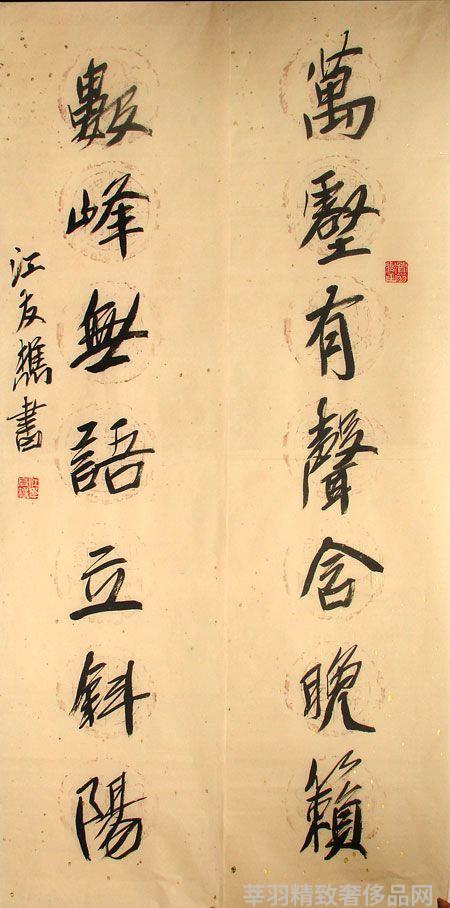 萬壑有聲含晚籟
數峰無語立斜陽
江友樵書
莘羽精致奢侈品网